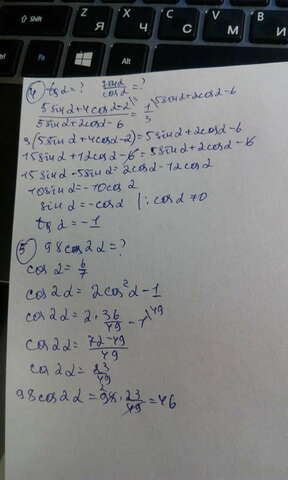 Я Ч С М И
④ tg α = ? sin α / cos α = ?
(5 sin α + 4 cos α - 2) / (5 sin α + 2 cos α - 6) = 1/3
3(5 sin α + 4 cos α - 2) = 5 sin α + 2 cos α - 6
15 sin α + 12 cos α - 6 = 5 sin α + 2 cos α - 6
15 sin α - 5 sin α = 2 cos α - 12 cos α
10 sin α = -10 cos α
sin α = -cos α |: cos α ≠ 0
tg α = -1
⑤ 98 cos 2α = ?
cos α = 6/7
cos 2α = 2 cos² α - 1
cos 2α = 2 · 36/49 - 1
cos 2α = (72 - 49)/49
cos 2α = 23/49
98 cos 2α = 98 · 23/49 = 46